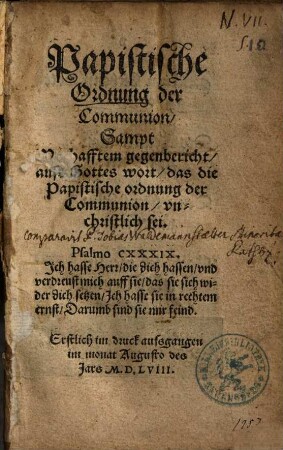 N. VII.
Papistische
Ordnung der
Communion/
Sampt
hafftem gegenbericht/
auß Gottes wort/ das die
Papistische ordnung der
Communion/ vn-
christlich sei.
Comparavit P. Tobias
Psalmo CXXXIX.
Ich hasse Herr/ die dich hassen/ vnd
verdreust mich auff sie/ das sie sich wi
der dich setzen/ Ich hasse sie in rechtem
ernst/ Darumb sind sie mir feind.
Erstlich im druck ausgangen
im monat Augusto des
Jars M. D. LVIII.